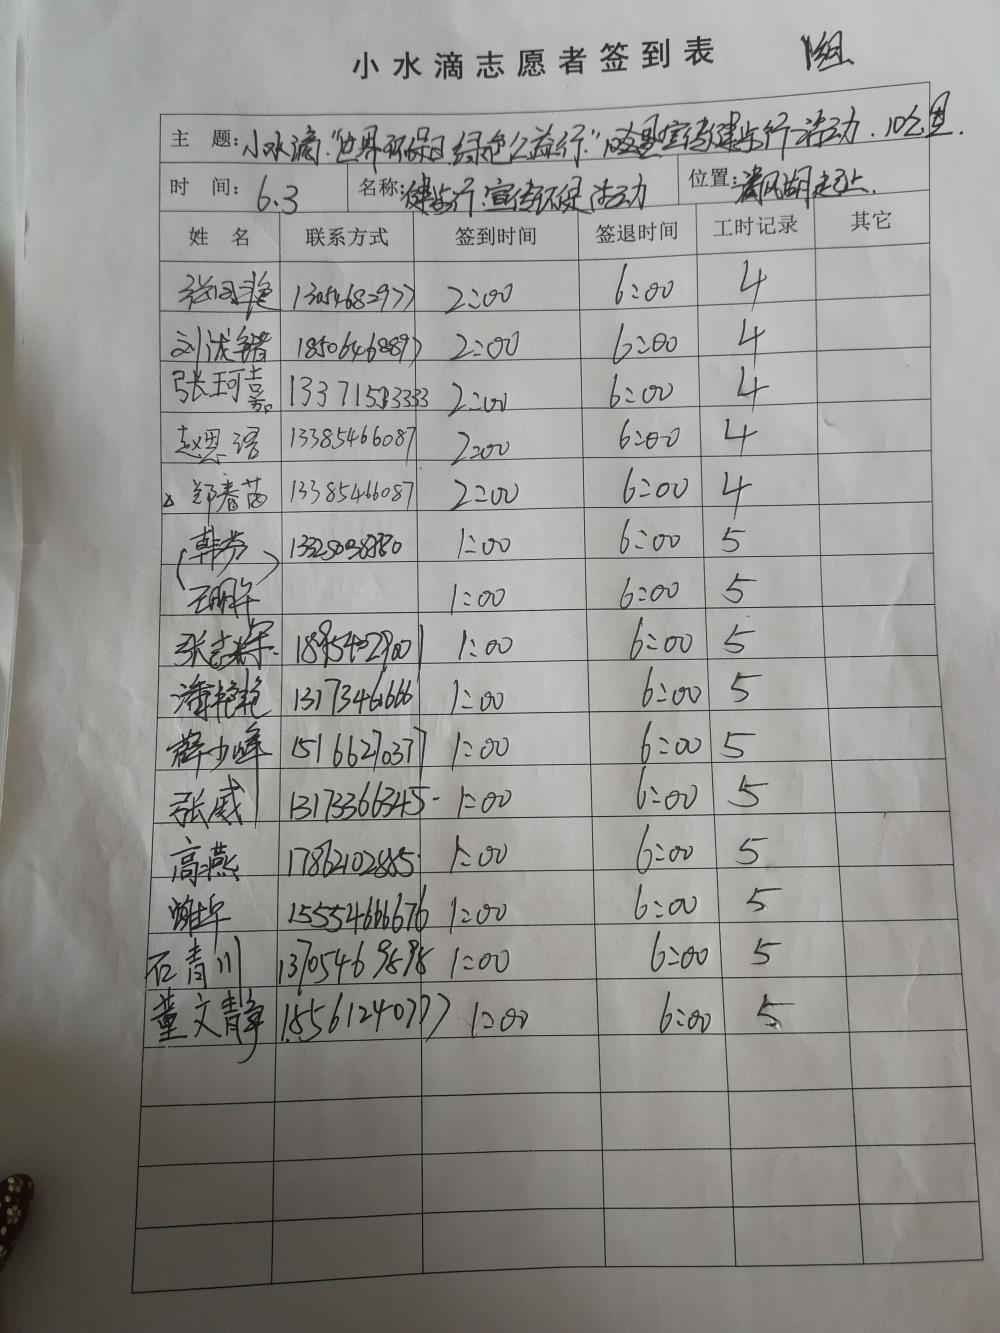 小水滴志愿者签到表 1组
主 题: 小水滴"世界环保日 绿色公益行" 宣传健步行活动.10公里.
时 间: 6.3 名称: 健步行.宣传环保活动 位置: 清风湖
姓 名 联系方式 签到时间 签退时间 工时记录 其它
13054682977 2:00 6:00 4
刘 18506468897 2:00 6:00 4
张珂嘉 2:00 6:00 4
赵思语 13385466087 2:00 6:00 4
郑春苗 13385466087 2:00 6:00 4
韩芳 1:00 6:00 5
1:00 6:00 5
张志 1:00 6:00 5
潘艳艳 1:00 6:00 5
薛少峰 15166270377 1:00 6:00 5
张威 13173366345 1:00 6:00 5
高燕 17862102885 1:00 6:00 5
15554666676 1:00 6:00 5
石青川 13705469898 1:00 6:00 5
董文静 18561240777 1:00 6:00 5